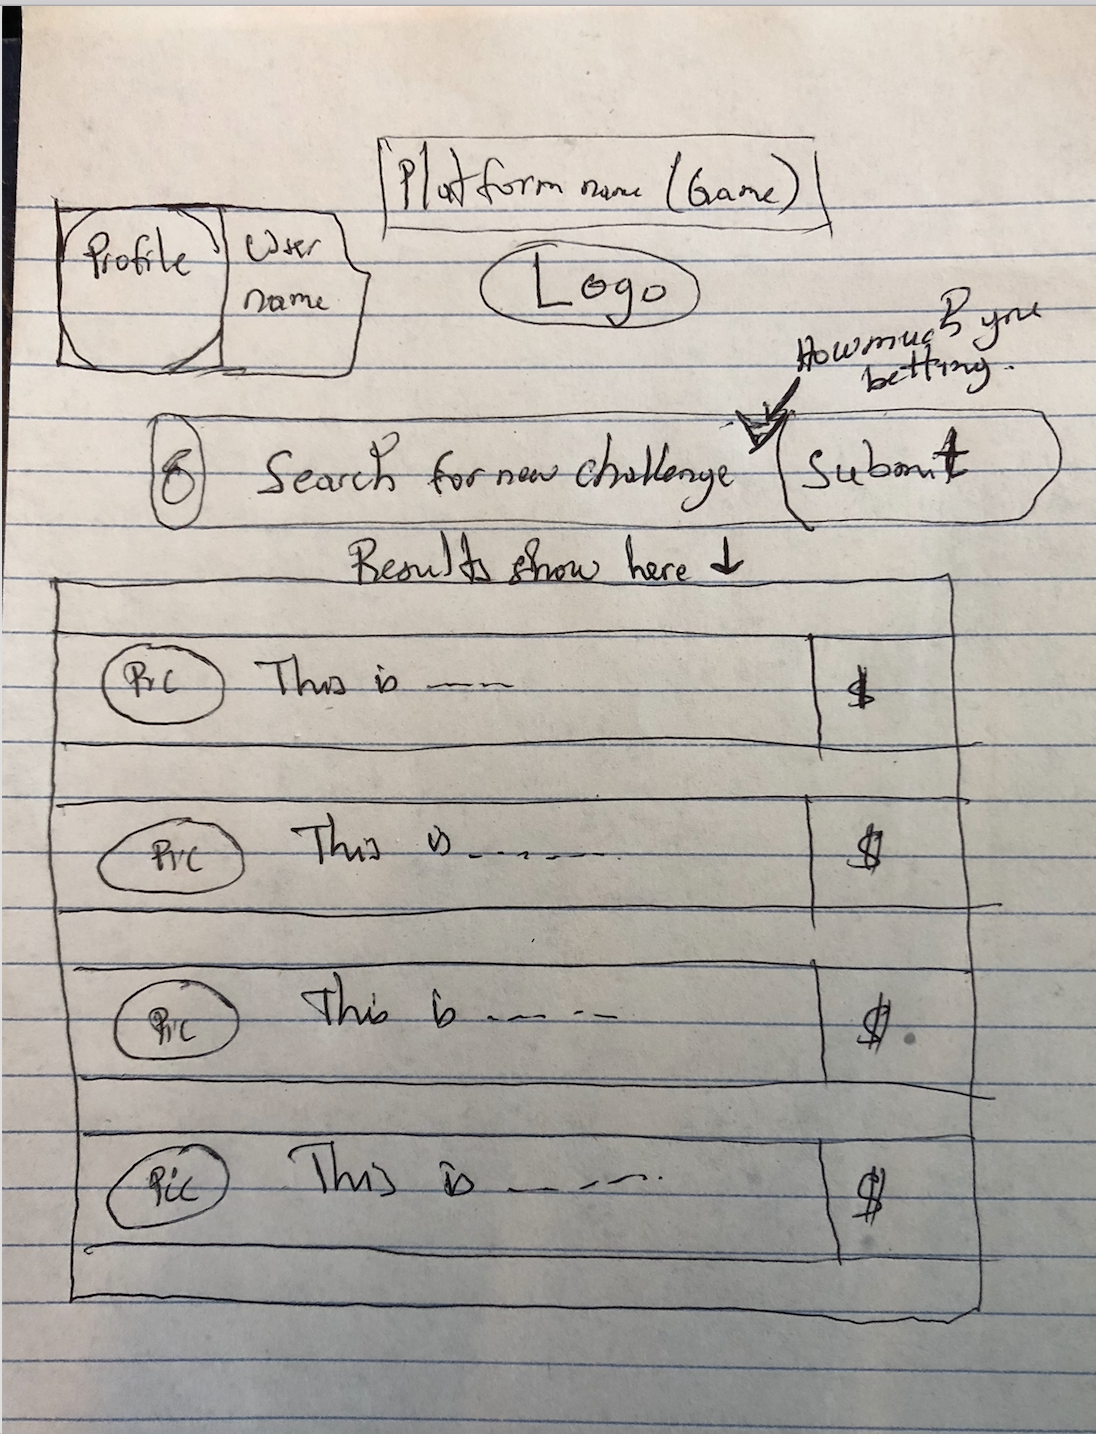 Platform name (Game)
Profile
User
name
Logo
How much you
betting.
Search for new challenge
Submit
Results show here ↓
Pic This is ----
$
Pic This is -------
$
Pic This is -----
$
Pic This is -----
$